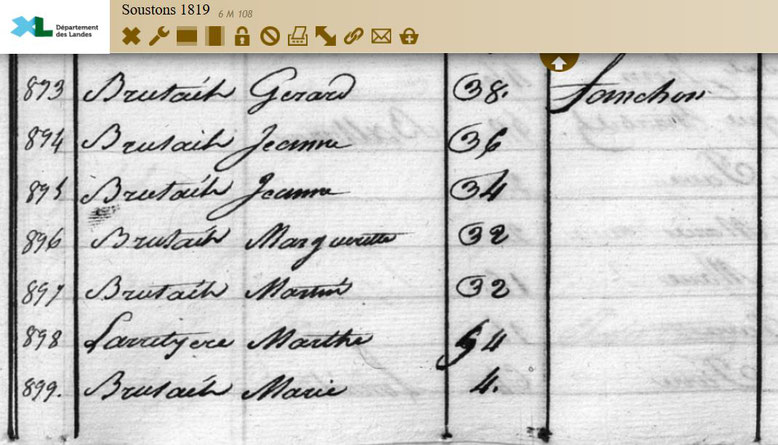 Soustons 1819 6 M 108
XL Département des Landes
893 Brutaih Gerard 38. Sanchon
894 Brutaih Jeanne 36
895 Brutaih Jeanne 34
896 Brutaih Marguerite 32
897 Brutaih Martin 32
898 Larritjere Marthe 54
899. Brutaih Marie 4.